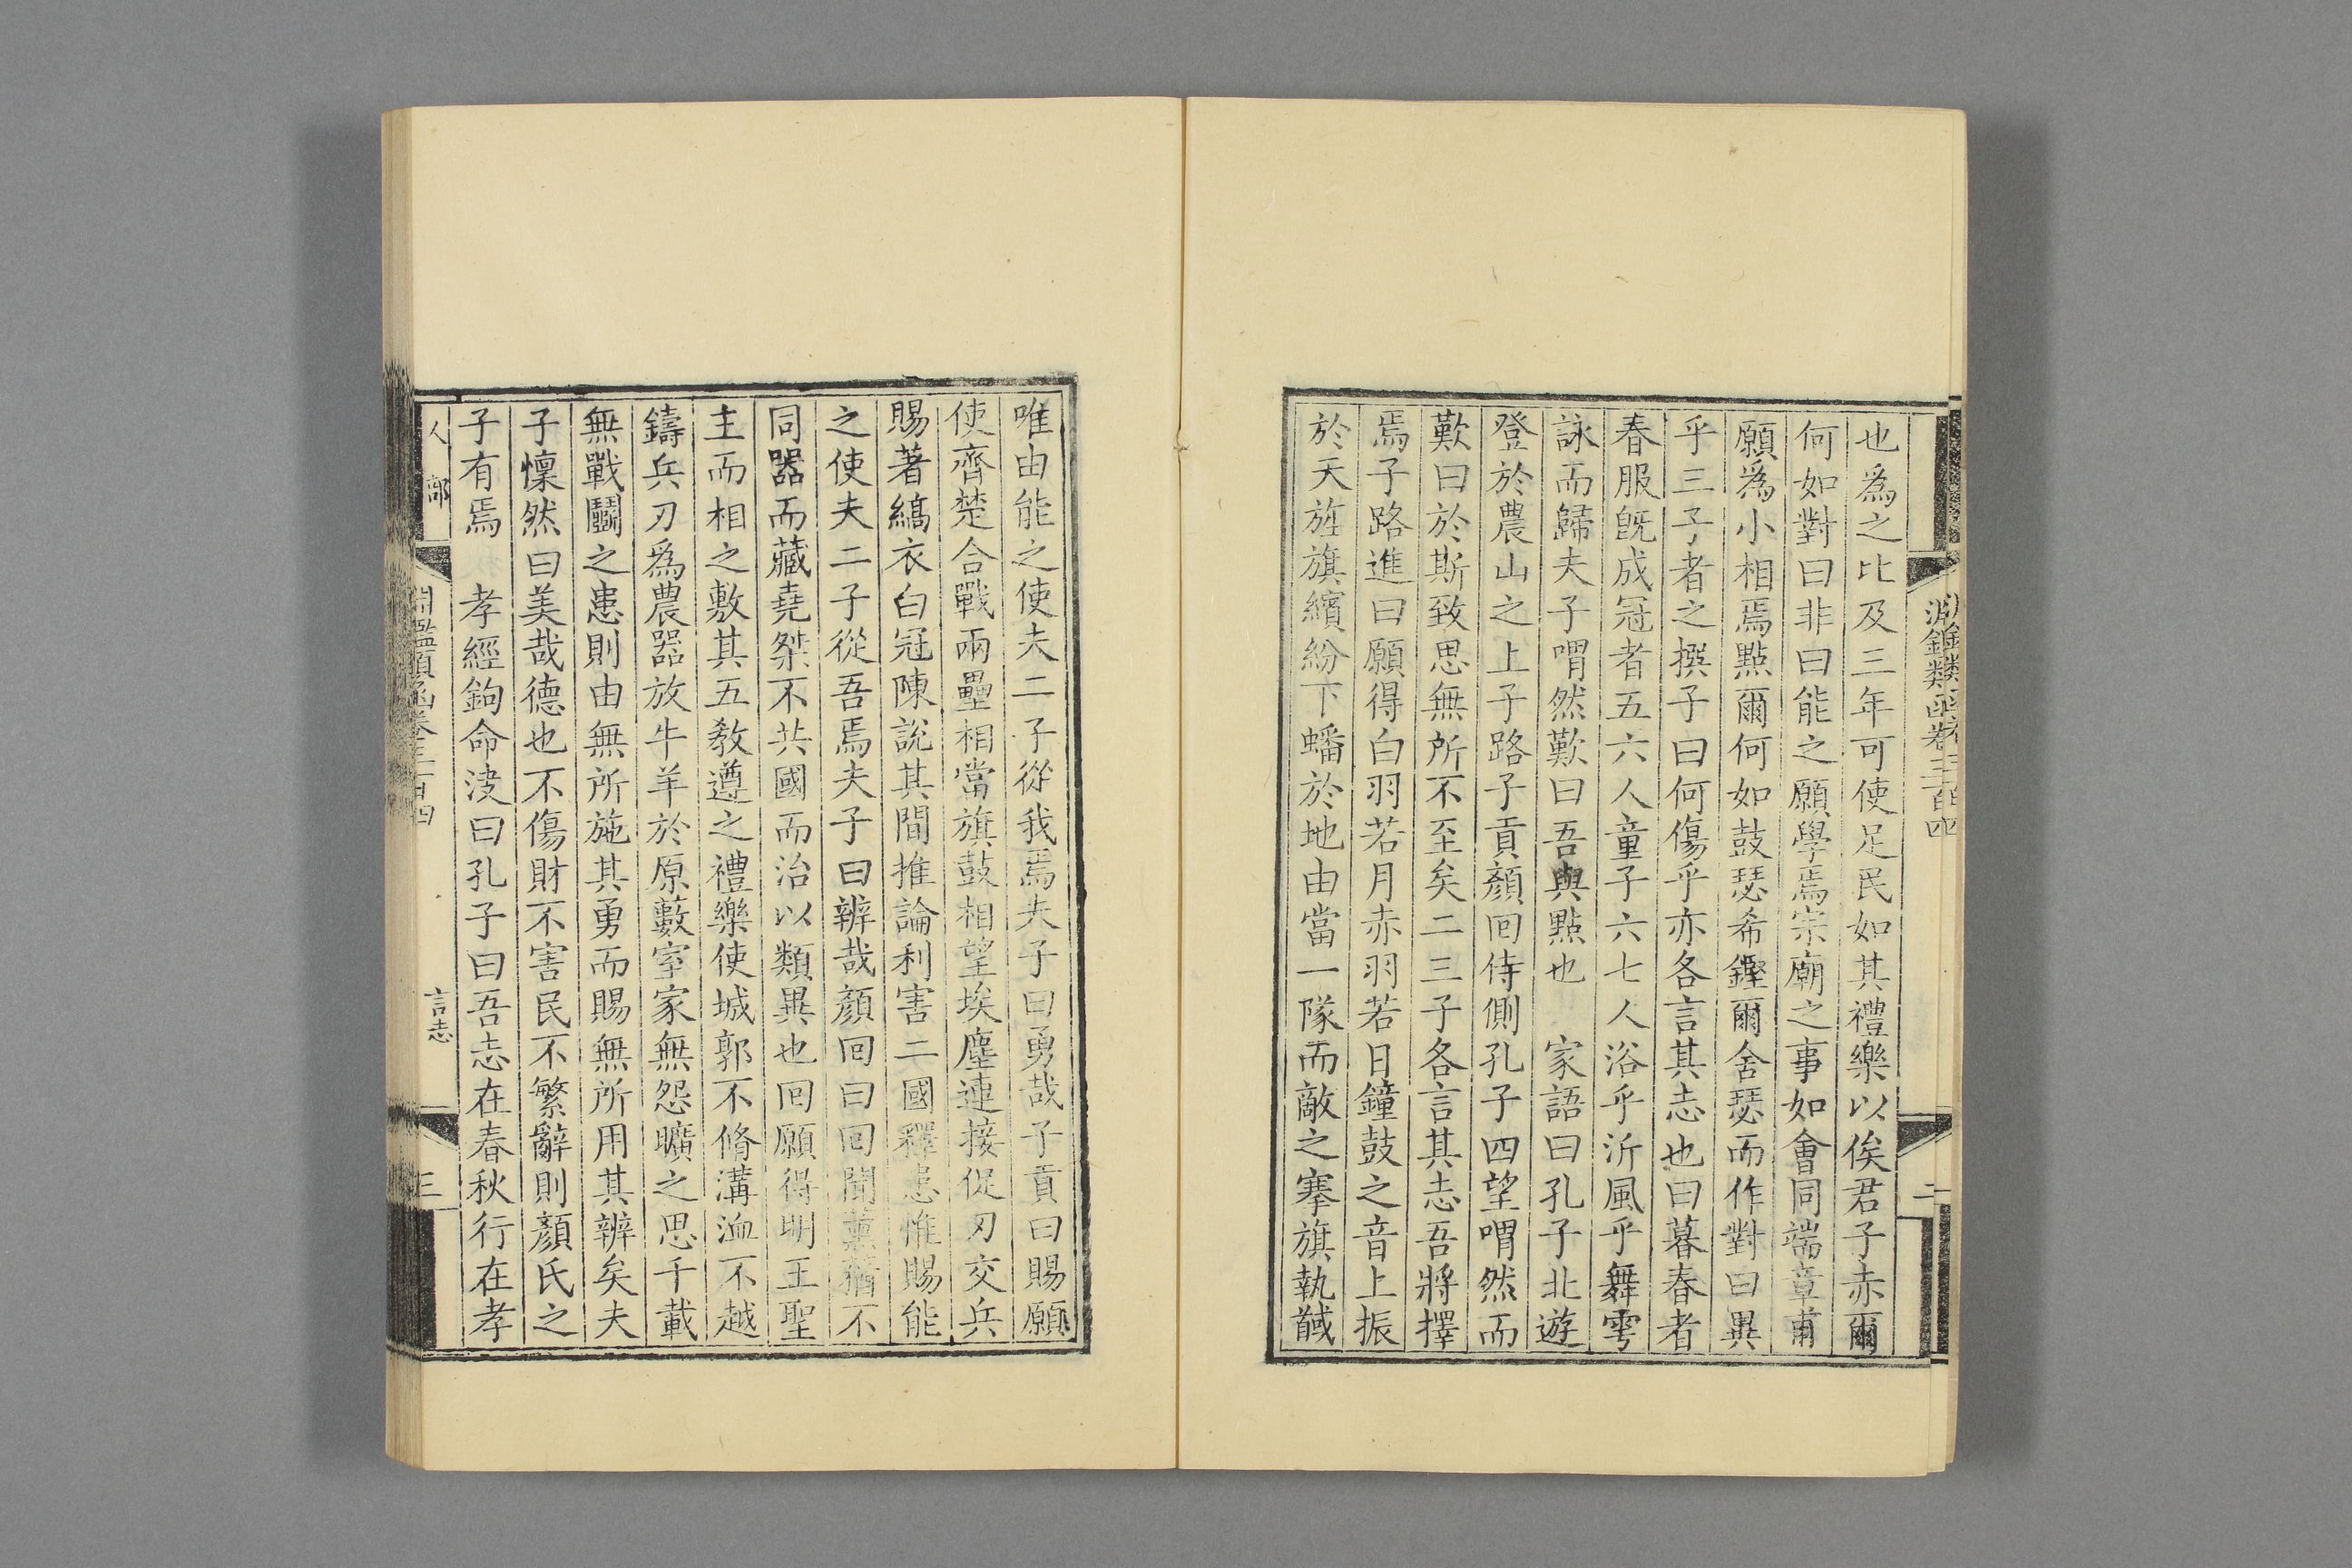 淵鑑類函卷三百四
二
也爲之比及三年可使足民如其禮樂以俟君子赤爾
何如對曰非曰能之願學焉宗廟之事如會同端章甫
願爲小相焉點爾何如鼓瑟希鏗爾舍瑟而作對曰異
乎三子者之撰子曰何傷乎亦各言其志也曰暮春者
春服旣成冠者五六人童子六七人浴乎沂風乎舞雩
詠而歸夫子喟然歎曰吾與點也　家語曰孔子北遊
登於農山之上子路子貢顏回侍側孔子四望喟然而
歎曰於斯致思無所不至矣二三子各言其志吾將擇
焉子路進曰願得白羽若月赤羽若日鐘鼓之音上振
於天旌旗繽紛下蟠於地由當一隊而敵之搴旗執馘
唯由能之使夫二子從我焉夫子曰勇哉子貢曰賜願
使齊楚合戰兩壘相當旗鼓相望埃塵連接促刃交兵
賜著縞衣白冠陳說其間推論利害二國釋患惟賜能
之使夫二子從吾焉夫子曰辨哉顏回曰回聞薰蕕不
同器而藏堯桀不共國而治以類異也回願得明王聖
主而相之敷其五教遵之禮樂使城郭不脩溝洫不越
鑄兵刃爲農器放牛羊於原藪室家無怨曠之思千載
無戰鬭之患則由無所施其勇而賜無所用其辨矣夫
子懍然曰美哉德也不傷財不害民不繁辭則顏氏之
子有焉　孝經鉤命決曰孔子曰吾志在春秋行在孝
人部
淵鑑類函卷三百四
言志
三